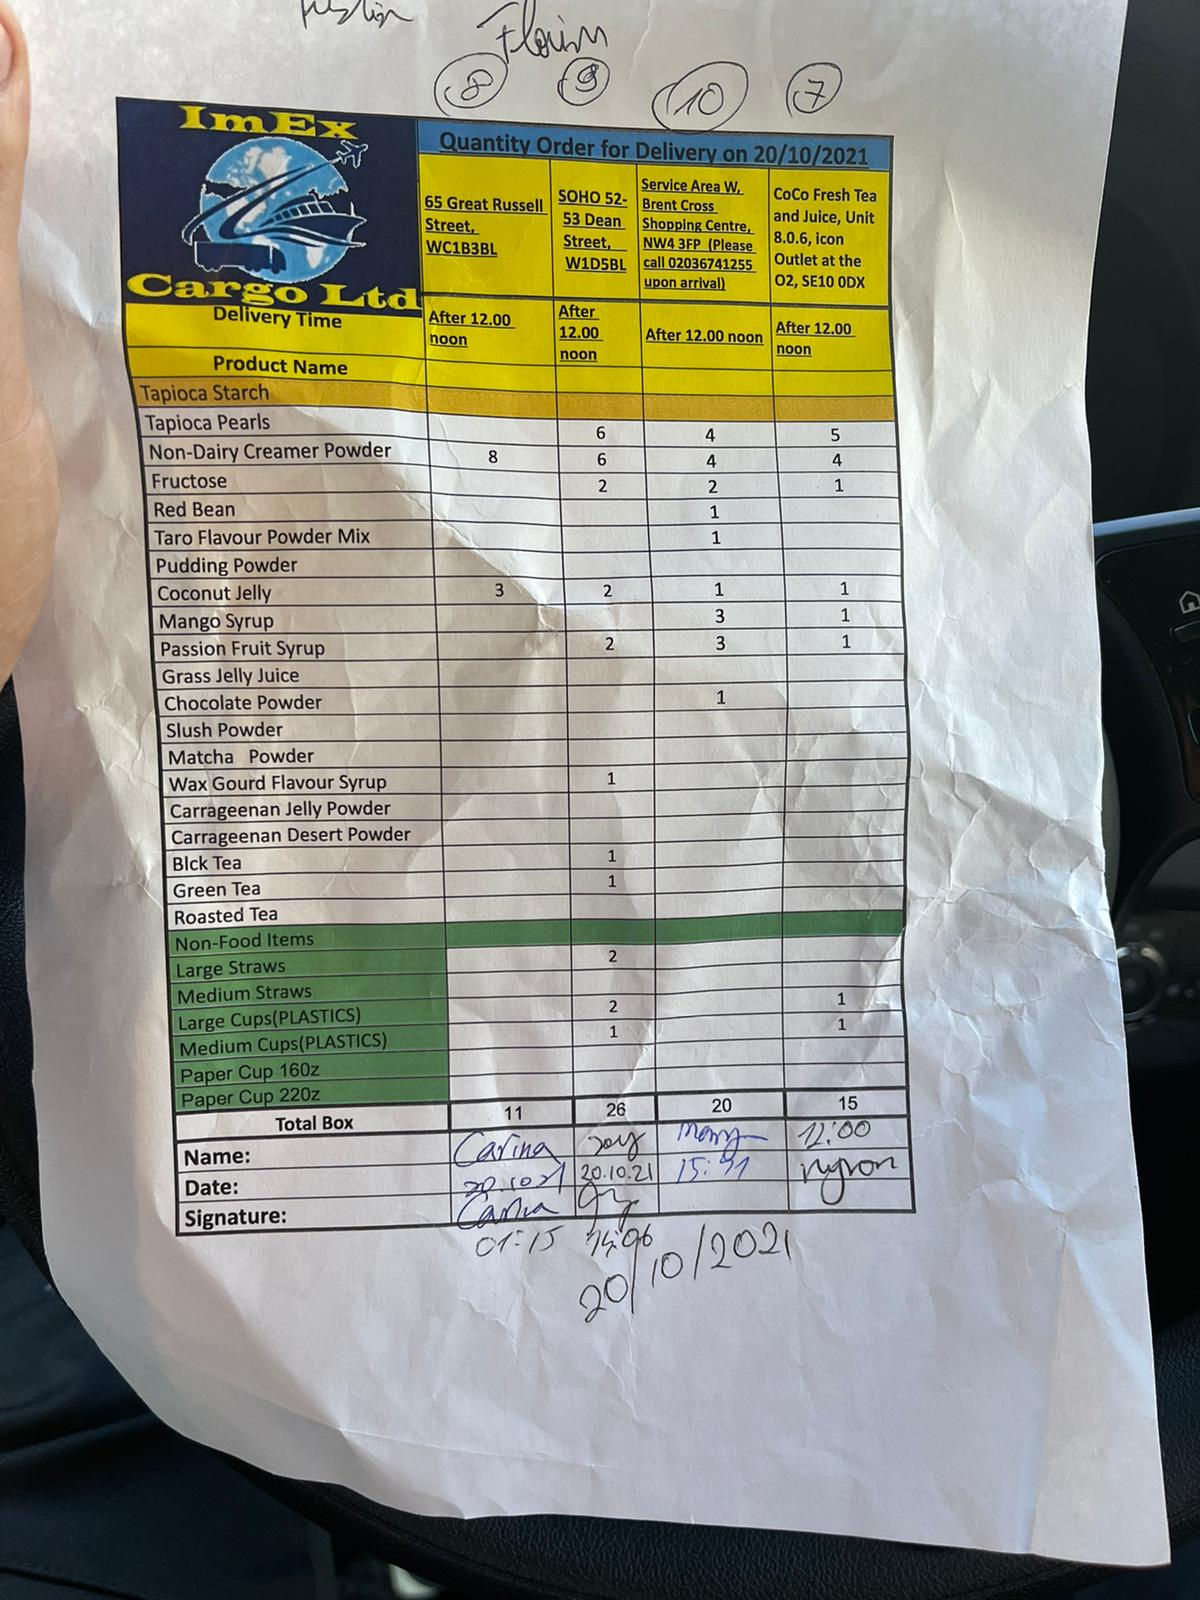 8 9 10 7
ImEx
Cargo Ltd
Quantity Order for Delivery on 20/10/2021
65 Great Russell
Street,
WC1B3BL
SOHO 52-
53 Dean
Street,
W1D5BL
Service Area W,
Brent Cross
Shopping Centre,
NW4 3FP (Please
call 02036741255
upon arrival)
CoCo Fresh Tea
and Juice, Unit
8.0.6, icon
Outlet at the
O2, SE10 0DX
Delivery Time
After 12.00
noon
After
12.00
noon
After 12.00 noon
After 12.00
noon
Product Name
Tapioca Starch
Tapioca Pearls 6 4 5
Non-Dairy Creamer Powder 8 6 4 4
Fructose 2 2 1
Red Bean 1
Taro Flavour Powder Mix 1
Pudding Powder
Coconut Jelly 3 2 1 1
Mango Syrup 3 1
Passion Fruit Syrup 2 3 1
Grass Jelly Juice
Chocolate Powder 1
Slush Powder
Matcha Powder
Wax Gourd Flavour Syrup 1
Carrageenan Jelly Powder
Carrageenan Desert Powder
Blck Tea 1
Green Tea 1
Roasted Tea
Non-Food Items
Large Straws 2
Medium Straws
Large Cups(PLASTICS) 2 1
Medium Cups(PLASTICS) 1 1
Paper Cup 16oz
Paper Cup 22oz
Total Box 11 26 20 15
Name: Carina 12:00
Date: 20.10.21 20.10.21
Signature: Carina
01:15
20/10/2021